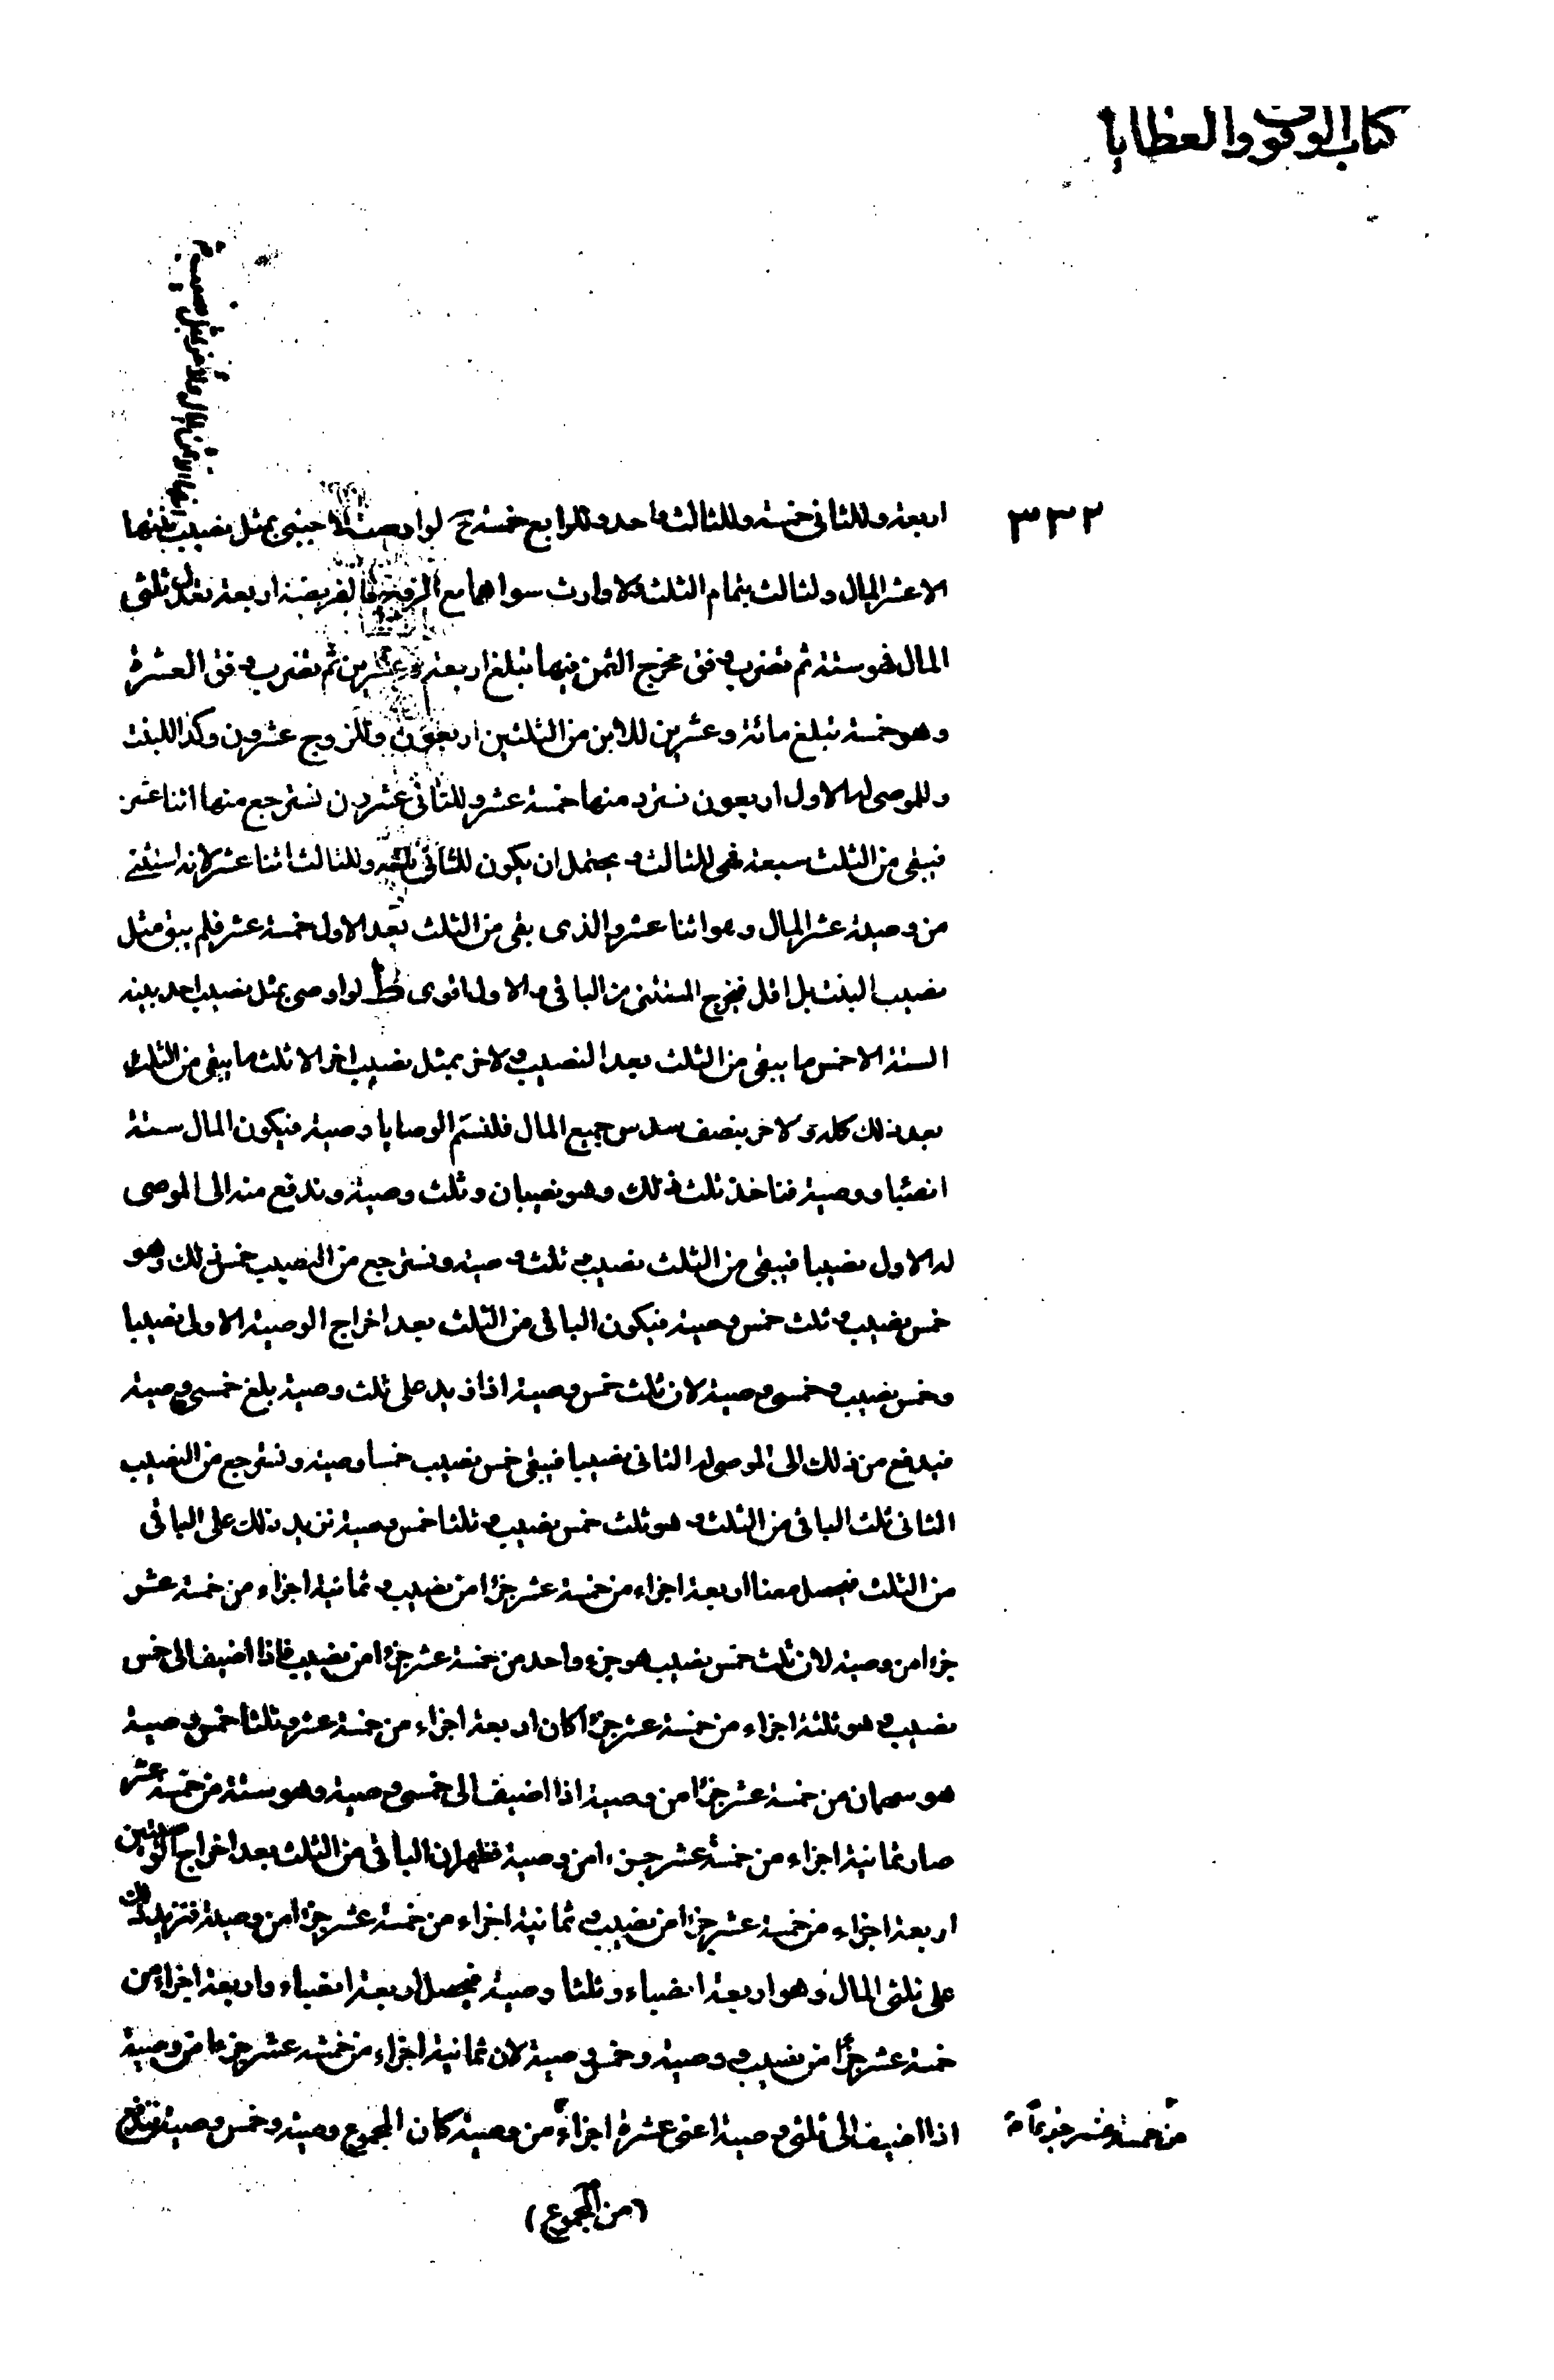 كتاب الوقوف والعطايا
٣٣٢
اربعة وللثانى خمسة وللثالث واحد وللرابع خمسة ح لو اوصت لاجنبى بمثل نصيب بنتها
الا عشر المال ولثالث بتمام الثلث ولا وارث سواهما مع الزوج فالفريضة اربعة تعدل ثلثى
المال فهو ستة ثم تضرب وفق مخرج الثمن فيها تبلغ اربعة وعشرين ثم تضرب وفق العشرة
وهو خمسة تبلغ مائة وعشرين للابن من الثلثين اربعون وللزوج عشرون وكذا للبنت
وللموصى له الاول اربعون نسترد منها خمسة عشر وللثانى عشرون نسترجع منها اثنا عشر
فيبقى من الثلث سبعة فهى للثالث ويحتمل ان يكون للثانى ثلثة وللثالث اثنا عشر لانه استثنى
من وصيته عشر المال وهو اثنا عشر والذى بقى من الثلث بعد الاول خمسة عشر فلم يبق مثل
نصيب البنت بل اقل فيخرج المستثنى من الباقى والاول اقوى ط لو اوصى بمثل نصيب احد بنيه
الستة الا خمس ما يبقى من الثلث بعد النصيب ولاخر بمثل نصيب اخر الا ثلث ما يبقى من الثلث
بعد ذلك كله ولاخر بنصف سدس جميع المال فلنسم الوصايا وصية فيكون المال ستة
انصبا ووصية فناخذ ثلث ذلك وهو نصيبان وثلث وصية وندفع منه الى الموصى
له الاول نصيبا فيبقى من الثلث نصيب وثلث وصية ونسترجع من النصيب خمس ذلك وهو
خمس نصيب وثلث خمس وصية فيكون الباقى من الثلث بعد اخراج الوصية الاولى نصيبا
وخمس نصيب وخمسى وصية لان ثلث خمس وصية اذا زيد على ثلث وصية بلغ خمسى وصية
فيدفع من ذلك الى الموصى له الثانى نصيبا فيبقى خمس نصيب خمسا وصية ونسترجع من النصيب
الثانى ثلث الباقى من الثلث وهو ثلث خمس نصيب وثلثا خمس وصية نزيد ذلك على الباقى
من الثلث فيحصل معنا اربعة اجزاء من خمسة عشر جزءا من نصيب وثمانية اجزاء من خمسة عشر
جزءا من وصية لان ثلث خمس نصيب هو جزء واحد من خمسة عشر جزءا من نصيب فاذا اضيف الى خمس
نصيب وهو ثلثة اجزاء من خمسة عشر جزءا كان اربعة اجزاء من خمسة عشر وثلثا خمس وصية
هو سهمان من خمسة عشر جزءا من وصية اذا اضيف الى خمسى وصية وهو ستة من خمسة عشر
صار ثمانية اجزاء من خمسة عشر جزءا من وصية فظهر ان الباقى من الثلث بعد اخراج الوصيتين
اربعة اجزاء من خمسة عشر جزءا من نصيب وثمانية اجزاء من خمسة عشر جزءا من وصية فنزيد ذلك
على ثلثى المال وهو اربعة انصباء وثلثا وصية فيحصل اربعة انصباء واربعة اجزاء من
خمسة عشر جزءا من نصيب ووصية وخمس وصية لان ثمانية اجزاء من خمسة عشر جزءا من وصية
اذا اضيف الى ثلثى وصية اعنى عشرة اجزاء من وصية كان المجموع وصية وخمس وصية فندفع
من خمسة عشر جزءا
(من المجموع)